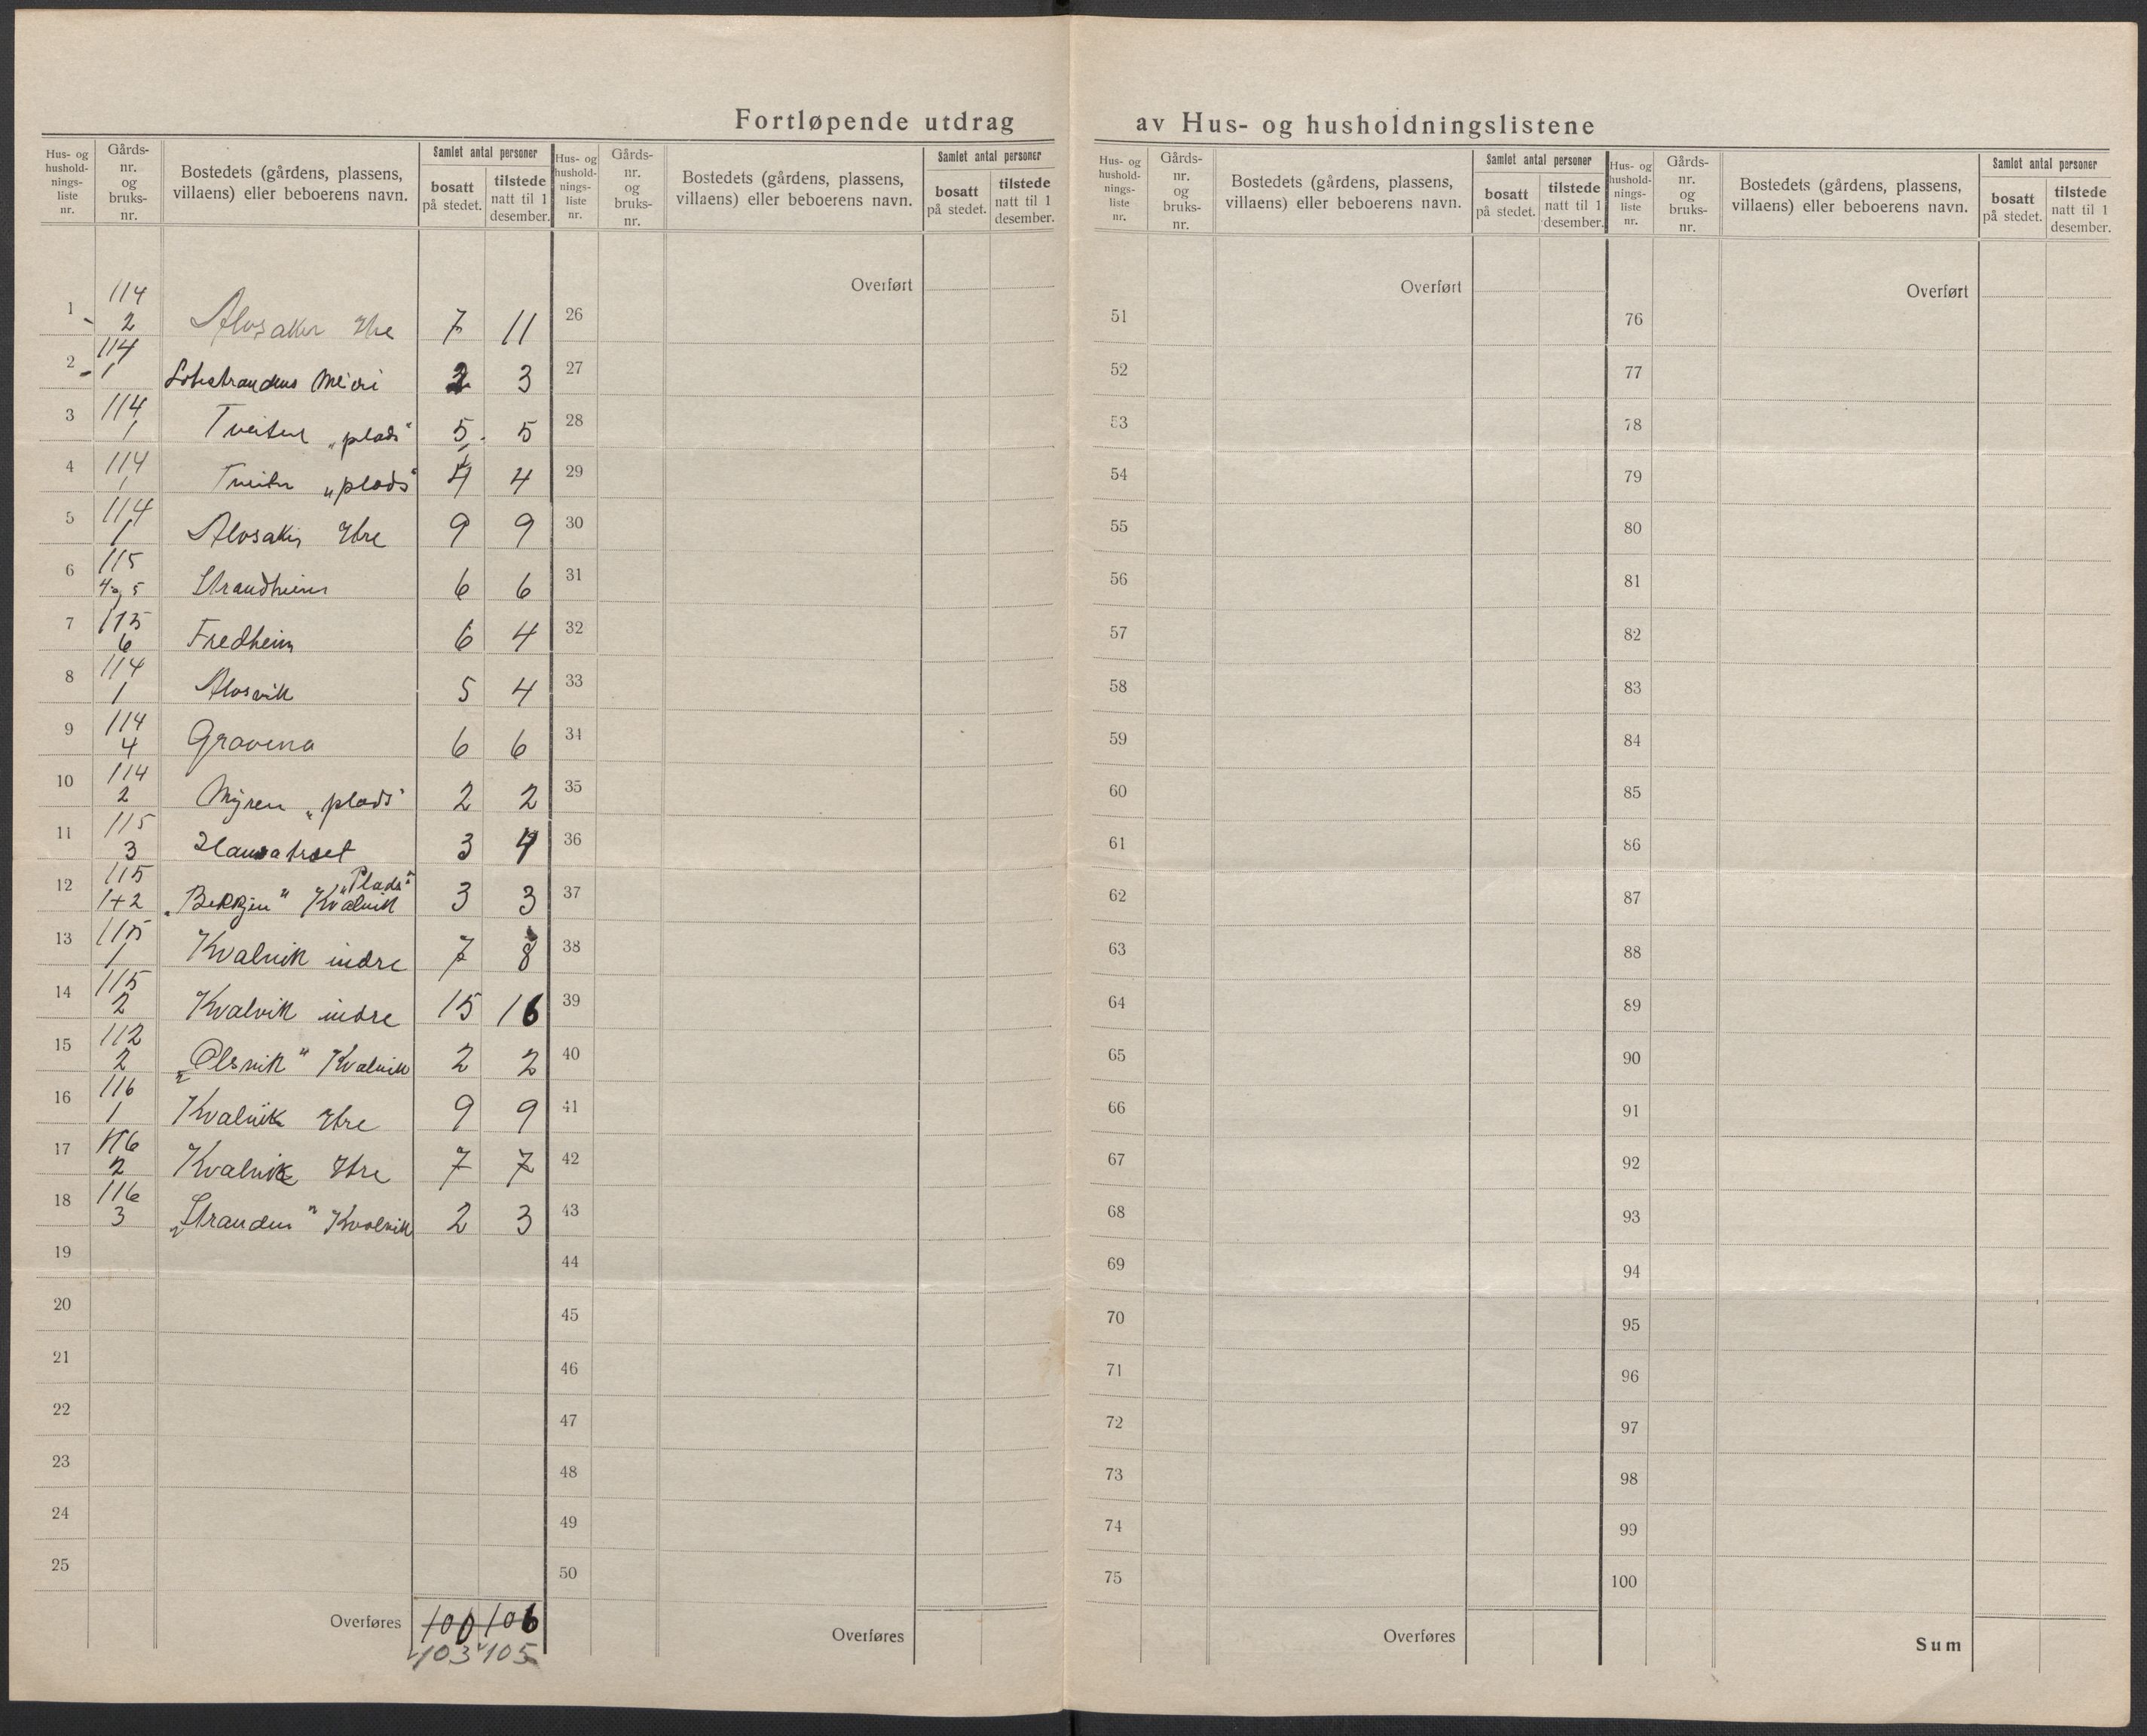 Fortløpende utdrag av Hus- og husholdningslistene
Hus- og hushold-nings-liste nr. Gårds-nr. og bruks-nr. Bostedets (gårdens, plassens, villaens) eller beboerens navn. Samlet antal personer bosatt på stedet. tilstede natt til 1 desember.
Hus- og hushold-nings-liste nr. Gårds-nr. og bruks-nr. Bostedets (gårdens, plassens, villaens) eller beboerens navn. Samlet antal personer bosatt på stedet. tilstede natt til 1 desember.
Hus- og hushold-nings-liste nr. Gårds-nr. og bruks-nr. Bostedets (gårdens, plassens, villaens) eller beboerens navn. Samlet antal personer bosatt på stedet. tilstede natt til 1 desember.
Hus- og hushold-nings-liste nr. Gårds-nr. og bruks-nr. Bostedets (gårdens, plassens, villaens) eller beboerens navn. Samlet antal personer bosatt på stedet. tilstede natt til 1 desember.
Overført Overført Overført
1 114 2 Alvsaker Ytre 7 11 26 51 76
2 114 1 3 27 52 77
3 114 1 "plads" 5 5 28 53 78
4 114 1 "plads" 4 4 29 54 79
5 114 1 Alvsaker Ytre 9 9 30 55 80
6 115 5 Strandheim 6 6 31 56 81
7 115 6 Fredheim 6 4 32 57 82
8 114 1 Alvsvik 5 4 33 58 83
9 114 4 Gravena 6 6 34 59 84
10 114 2 Myren "plads" 2 2 35 60 85
11 115 3 3 4 36 61 86
12 115 1+2 "Bekkjen" Kvalvik "Plads" 3 3 37 62 87
13 115 1 Kvalvik indre 7 8 38 63 88
14 115 2 Kvalvik indre 15 16 39 64 89
15 112 2 "Olsvik" Kvalvik 2 2 40 65 90
16 116 1 Kvalvik Ytre 9 9 41 66 91
17 116 2 Kvalvik Ytre 7 7 42 67 92
18 116 3 "Stranden" Kvalvik 2 3 43 68 93
19 44 69 94
20 45 70 95
21 46 71 96
22 47 72 97
23 48 73 98
24 49 74 99
25 50 75 100
Overføres 100 106 Overføres Overføres Sum
103 105